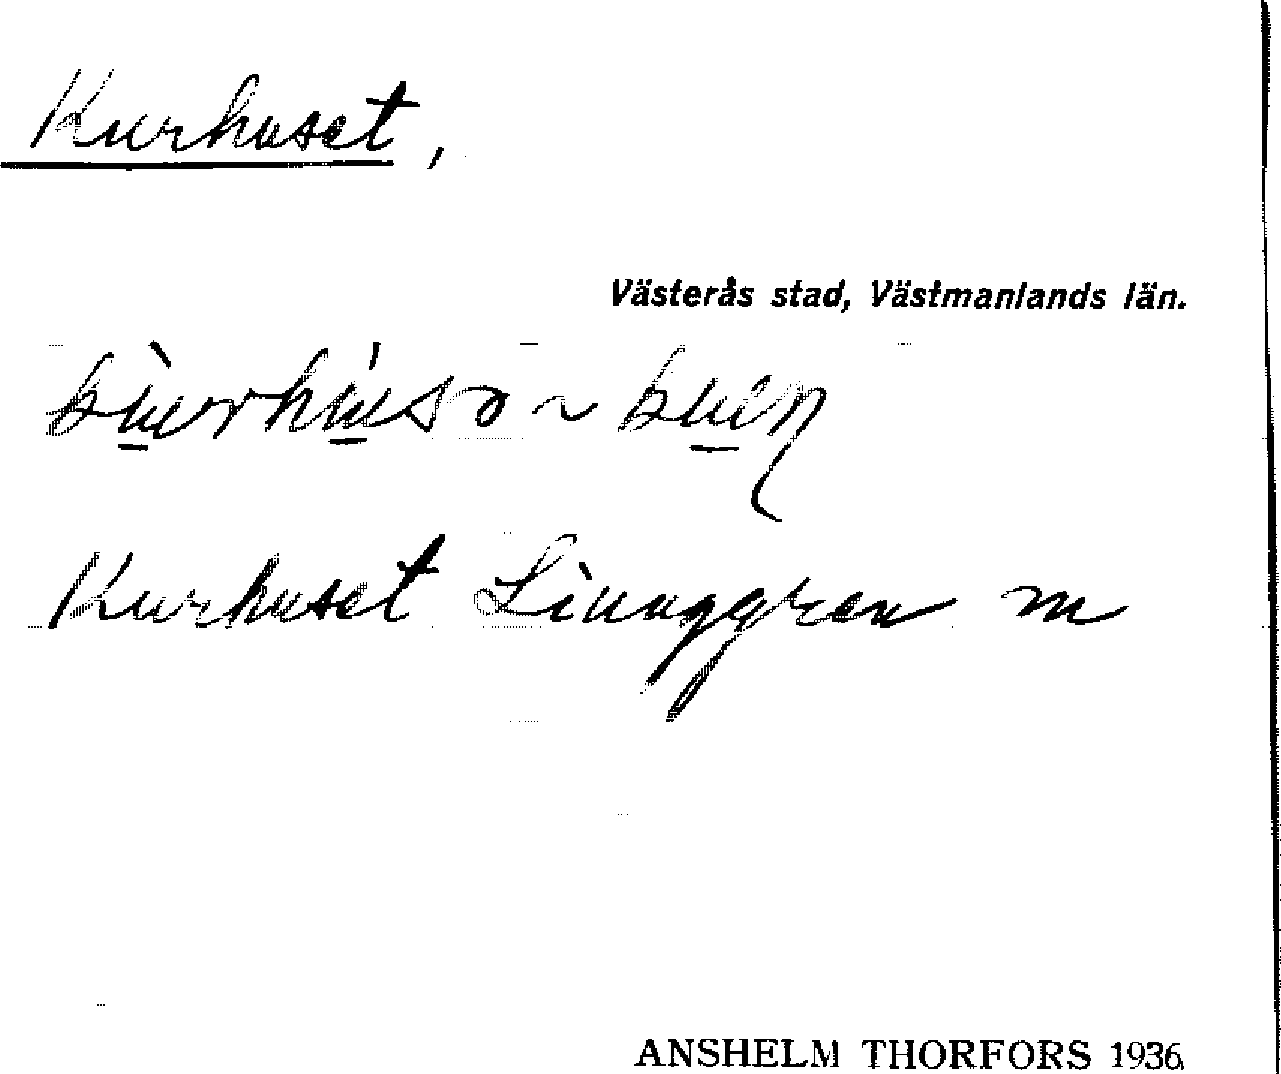 Kurhuset,
Västerås stad, Västmanlands län.
Kurhuset Linnggren m
ANSHELM THORFORS 1936